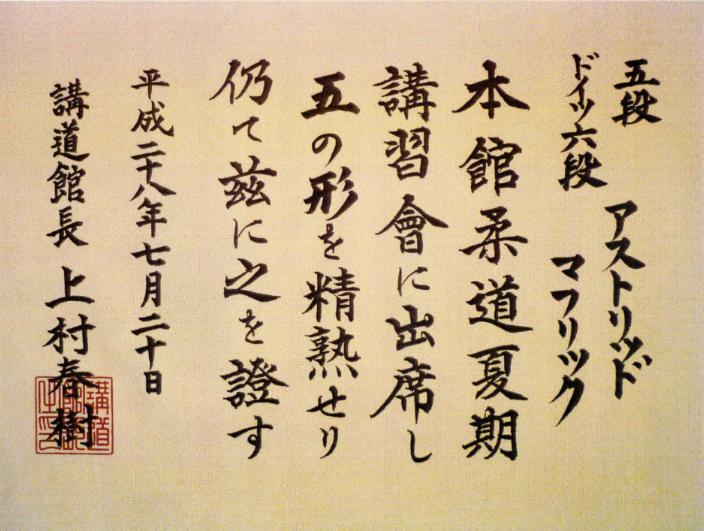 五段
アストリッド
ドイツ六段
マフリック
本館柔道夏期
講習會に出席し
五の形を精熟せり
仍て茲に之を證す
平成二十八年七月二十日
講道館長 上村春樹